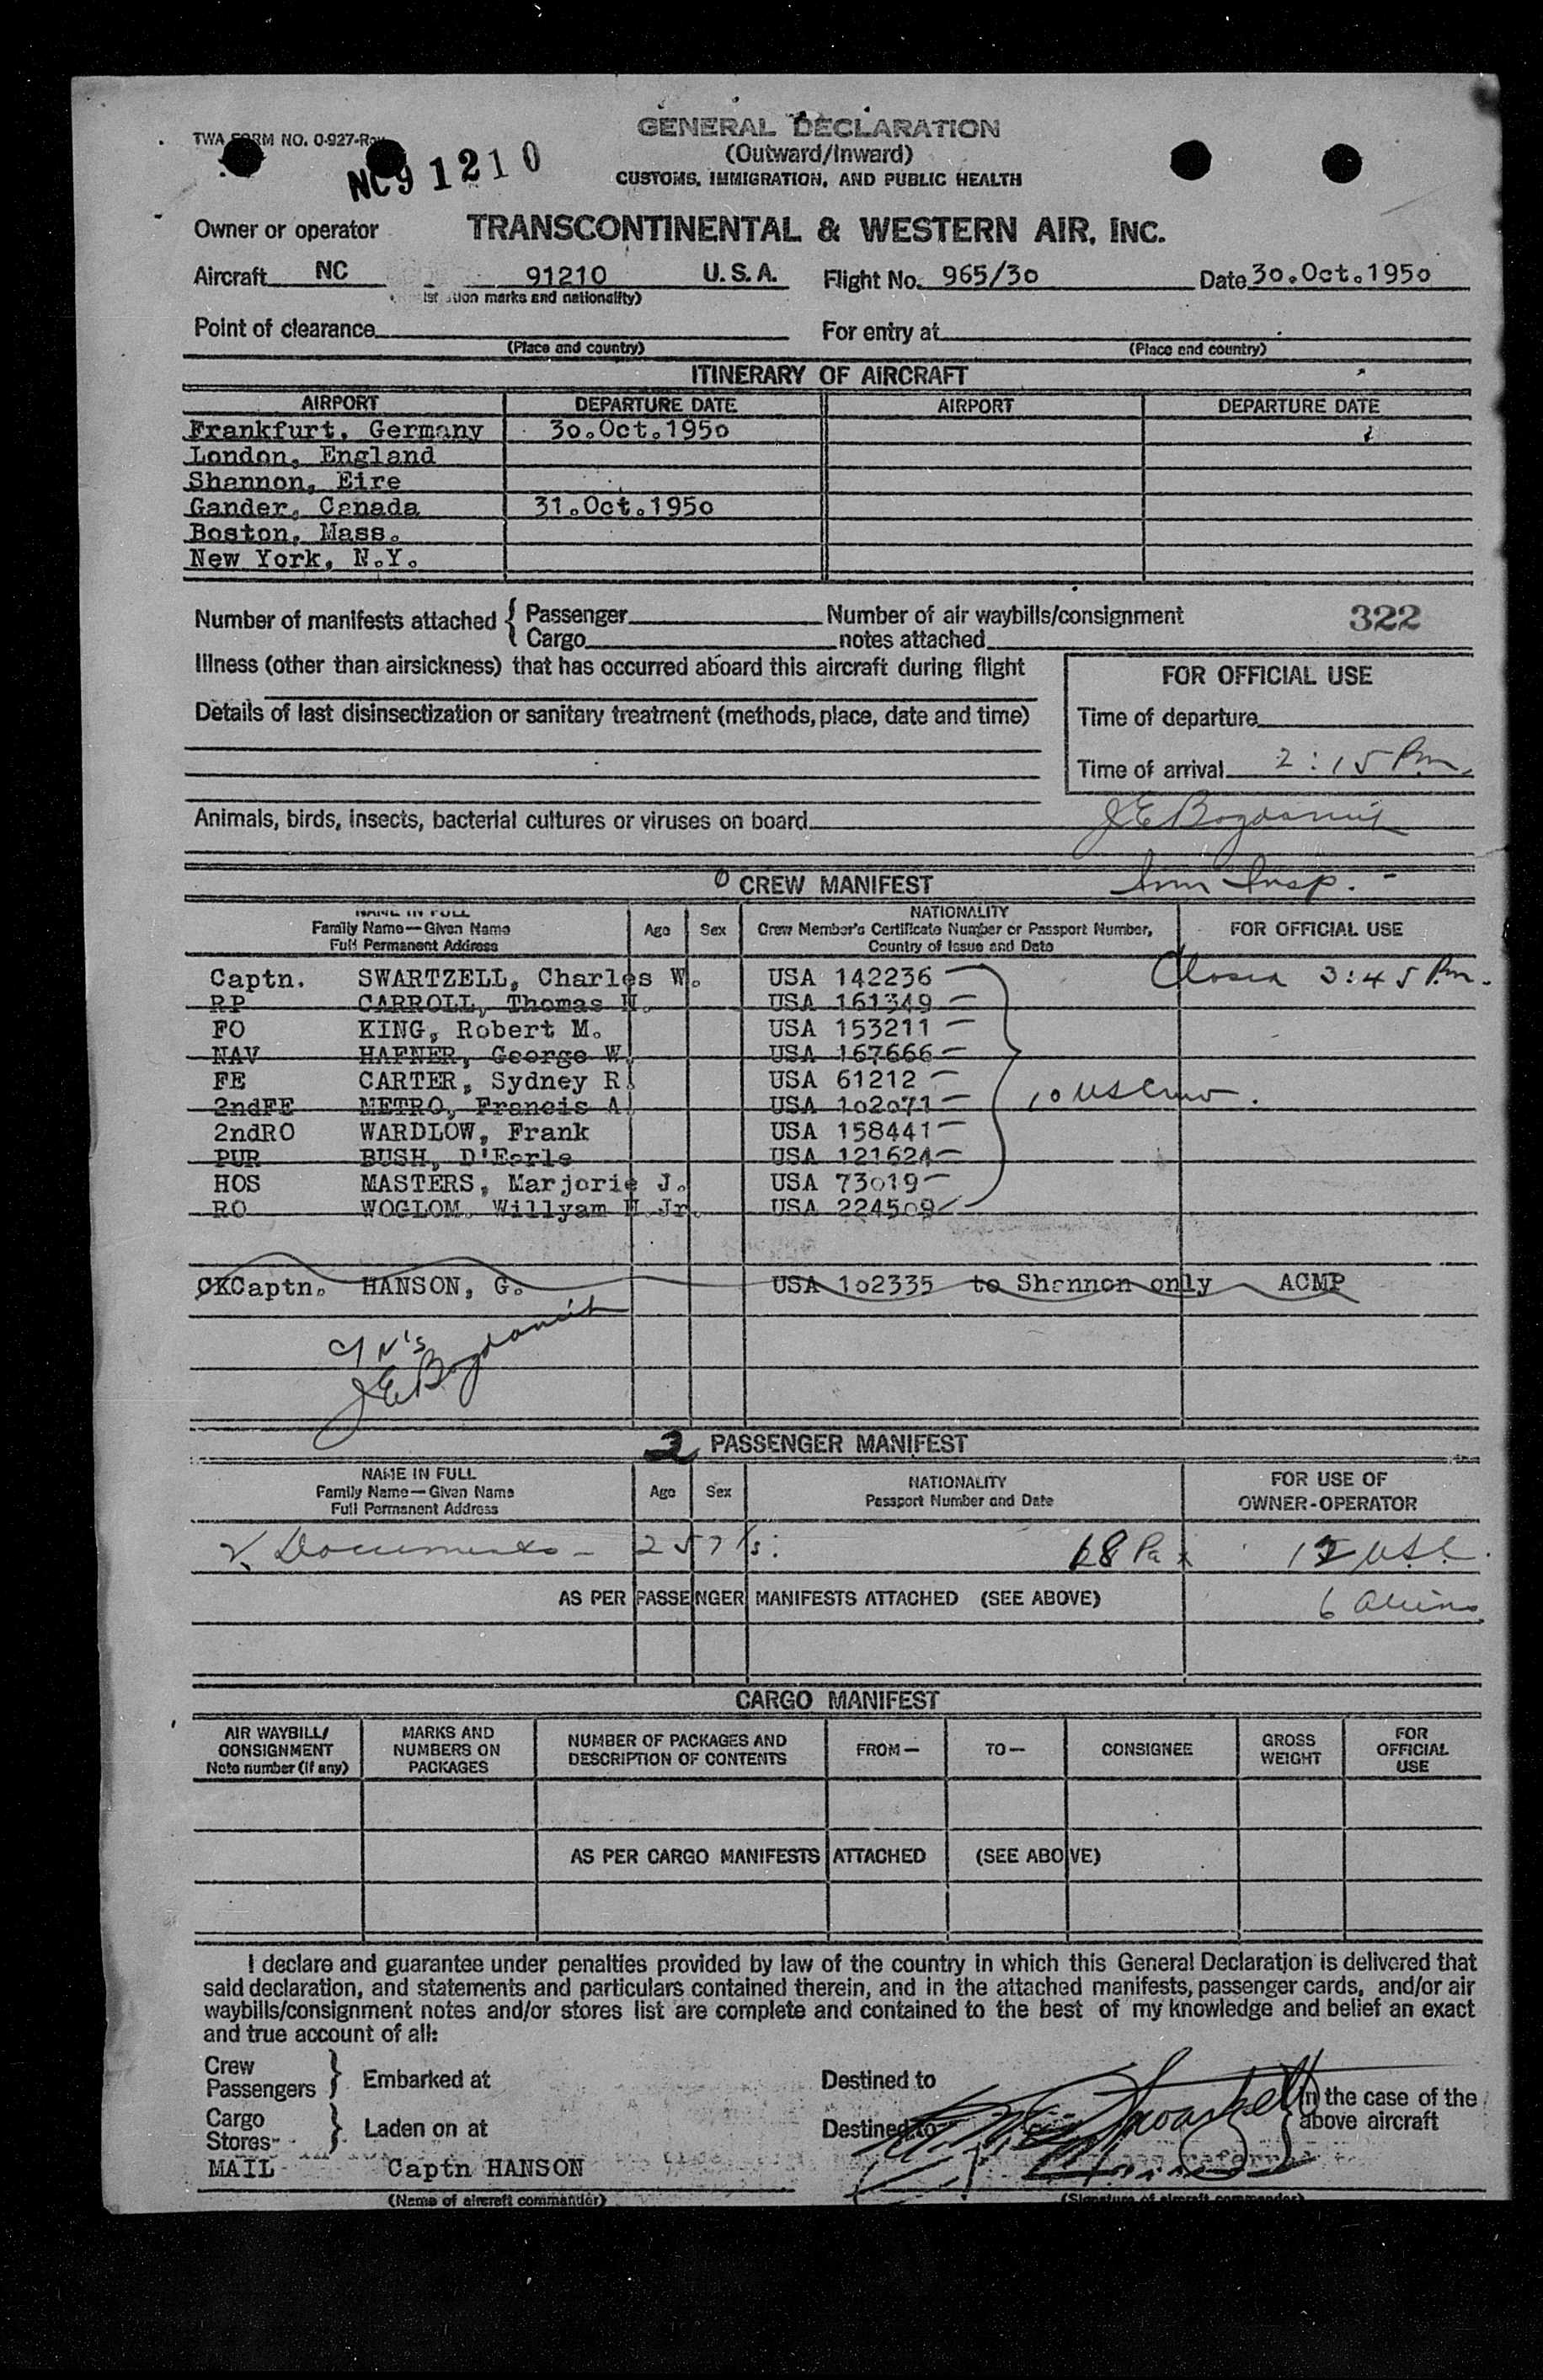 TWA FORM NO. 0-927-Rev
NC91210
GENERAL DECLARATION
(Outward/Inward)
CUSTOMS, IMMIGRATION, AND PUBLIC HEALTH
Owner or operator TRANSCONTINENTAL & WESTERN AIR, INC.
Aircraft NC 91210 U.S.A. Flight No. 965/30 Date 30.Oct.1950
marks and nationality)
Point of clearance For entry at
(Place and country) (Place and country)
ITINERARY OF AIRCRAFT
AIRPORT DEPARTURE DATE AIRPORT DEPARTURE DATE
Frankfurt, Germany 30.Oct.1950
London, England
Shannon, Eire
Gander, Canada 31.Oct.1950
Boston, Mass.
New York, N.Y.
Number of manifests attached { Passenger Number of air waybills/consignment 322
Cargo notes attached
Illness (other than airsickness) that has occurred aboard this aircraft during flight
FOR OFFICIAL USE
Details of last disinsectization or sanitary treatment (methods, place, date and time)
Time of departure
Time of arrival 2:15 Pm
Animals, birds, insects, bacterial cultures or viruses on board
Imm Insp.
0 CREW MANIFEST
NAME IN FULL
Family Name—Given Name
Full Permanent Address
Age Sex
NATIONALITY
Crew Member's Certificate Number or Passport Number,
Country of Issue and Date
FOR OFFICIAL USE
Closed 3:45 Pm.
Captn. SWARTZELL, Charles W. USA 142236
RP CARROLL, Thomas H. USA 161349
FO KING, Robert M. USA 153211
NAV HAFNER, George W. USA 167666
FE CARTER, Sydney R. USA 61212
2ndFE METRO, Francis A. USA 102071
10 US Crew.
2ndRO WARDLOW, Frank USA 158441
PUR BUSH, D'Earle USA 121624
HOS MASTERS, Marjorie J. USA 73019
RO WOGLOM, Willyam H.Jr. USA 224509
CKCaptn. HANSON, G. USA 102335 to Shannon only ACMP
2 PASSENGER MANIFEST
NAME IN FULL
Family Name—Given Name
Full Permanent Address
Age Sex
NATIONALITY
Passport Number and Date
FOR USE OF
OWNER-OPERATOR
Documents – 257's: 18 Pax 12 USC.
AS PER PASSENGER MANIFESTS ATTACHED (SEE ABOVE) 6 Aliens
CARGO MANIFEST
AIR WAYBILL/
CONSIGNMENT
Note number (if any)
MARKS AND
NUMBERS ON
PACKAGES
NUMBER OF PACKAGES AND
DESCRIPTION OF CONTENTS
FROM— TO— CONSIGNEE
GROSS
WEIGHT
FOR
OFFICIAL
USE
AS PER CARGO MANIFESTS ATTACHED (SEE ABOVE)
I declare and guarantee under penalties provided by law of the country in which this General Declaration is delivered that
said declaration, and statements and particulars contained therein, and in the attached manifests, passenger cards, and/or air
waybills/consignment notes and/or stores list are complete and contained to the best of my knowledge and belief an exact
and true account of all:
Crew
Passengers } Embarked at Destined to
In the case of the
above aircraft
Cargo
Stores } Laden on at Destined to
MAIL Captn HANSON
(Name of aircraft commander) (Signature of aircraft commander)